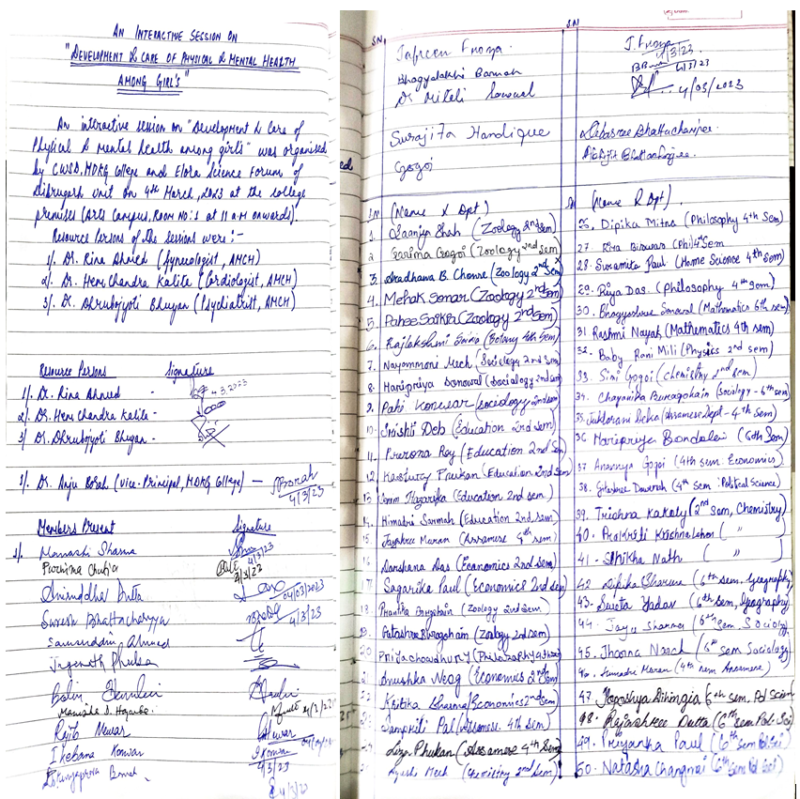 AN INTERACTIVE SESSION ON
"DEVELOPMENT & CARE OF PHYSICAL & MENTAL HEALTH
AMONG GIRL'S"
An interactive session on "Development & Care of
Physical & mental health among girls" was organised
by CWSD, MDKG College and Elora Science Forum of
Dibrugarh unit on 4th March, 2023 at the college
premises (Arts Campus, Room No:1 at 11 A.M onwards).
Resource Persons of the sessions were:-
1/. Dr. Rina Ahmed (Gynecologist, AMCH)
2/. Dr. Hem Chandra Kalita (Cardiologist, AMCH)
3/. Dr. Dhrubajyoti Bhuyan (Psychiatrist, AMCH)
Resource Persons Signature
1/. Dr. Rina Ahmed - 4.3.2023
2/. Dr. Hem Chandra Kalita -
3/ Dr. Dhrubajyoti Bhuyan -
1/. Dr. Anju Borah (Vice-Principal, MDKG College) - Aborah
4/3/23
Members Present Signature
Manashi Sharma
4/3/23
Purnima Chutia
Aniruddha Dutta 04/03/2023
Suresh Bhattacharyya 4/3/23
Samsuddin Ahmed
Jagannath Phukan
Manisha D. Hazarika
Rajib Newar
Ikebana Konwar IKonwar
4/3/23
4/3/23
S.N
Jafreen Firoza
Bhagyalakhi Barman
Dr Mitali Sonowal
Surajita Handique
Gogoi
S.N
J. Firoza
4/3/23
4/3/23
4/03/2023
Debasree Bhattacharjee
Debajit Bhattacharjee
S.N (Name & Dpt)
1. Saaniya Shah (Zoology 2nd Sem)
2. Garima Gogoi (Zoology 2nd Sem)
3. Aradhana B. Chowre (Zoology 2nd Sem)
4. Mehak Soman (Zoology 2nd Sem)
5. Pahee Saikia (Zoology 2nd Sem)
6. Rajlakshmi (Botany 4th Sem)
7. Nayanmoni Mech (Sociology 2nd sem)
8. Haripriya Sonowal (Sociology 2nd sem)
9. Pahi Konwar (Sociology 2nd sem)
10. Srishti Deb (Education 2nd sem)
11. Purbona Roy (Education 2nd Sem)
12. Phukan (Education 2nd Sem)
13. Hazarika (Education 2nd sem)
14. Himadri Sarmah (Education 2nd sem)
15. Jayshree Muran (Assamese 4th sem)
16. Das (Economics 2nd sem)
17. Sagarika Paul (Economics 2nd Sem)
18. (Zoology 2nd Sem)
19. (Zoology 2nd sem)
20. Priya Chowdhury (Philosophy 4th sem)
21. Anushka Neog (Economics 2nd Sem)
22. Kritika Sharma (Economics 2nd Sem)
23. Sampriti Pal (Assamese 4th Sem)
24. Liza Phukan (Assamese 4th Sem)
25. Mech (Chemistry 2nd Sem)
SN (Name & Dpt).
26. Dipika Mitra (Philosophy 4th Sem)
27. Rita Biswas (Phil) 4th Sem
28. Susmita Paul (Home Science 4th Sem)
29. Riya Das. (Philosophy 4th Sem)
30. Bhagyeshwari Sonowal (Mathematics 6th sem)
31 Rashmi Nayak (Mathematics 4th sem)
32. Baby Rani Mili (Physics 2nd sem)
33. Simi Gogoi (Chemistry 2nd sem)
34. Chayanika Buragohain (Sociology - 6th sem)
35. Deka (Assamese Dept - 4th Sem)
36 Haripriya Bondalei (6th Sem)
37 Anannya Gogoi (4th sem. Economics)
38. Dowerah (4th Sem : Political Science)
39. Trishna Kakoty (2nd sem, Chemistry)
40. Prakriti Krishna Lahon ( " )
41. Shikha Nath ( " )
42. Sharma (6th sem. Geography)
43. Sweta Yadav (6th sem, Geography)
44. Jayshree Sharma (6th Sem Sociology)
45. Jhorna Nack (6th Sem Sociology)
46. Moran (4th sem Assamese)
47. Tapashya Dihingia (6th sem, Pol Science)
48. Rajashree Dutta (6th Sem Pol. Sci)
49. Priyanka Paul (6th Sem Pol Sci)
50. Natasha Changmai (6th Sem Pol Sci)